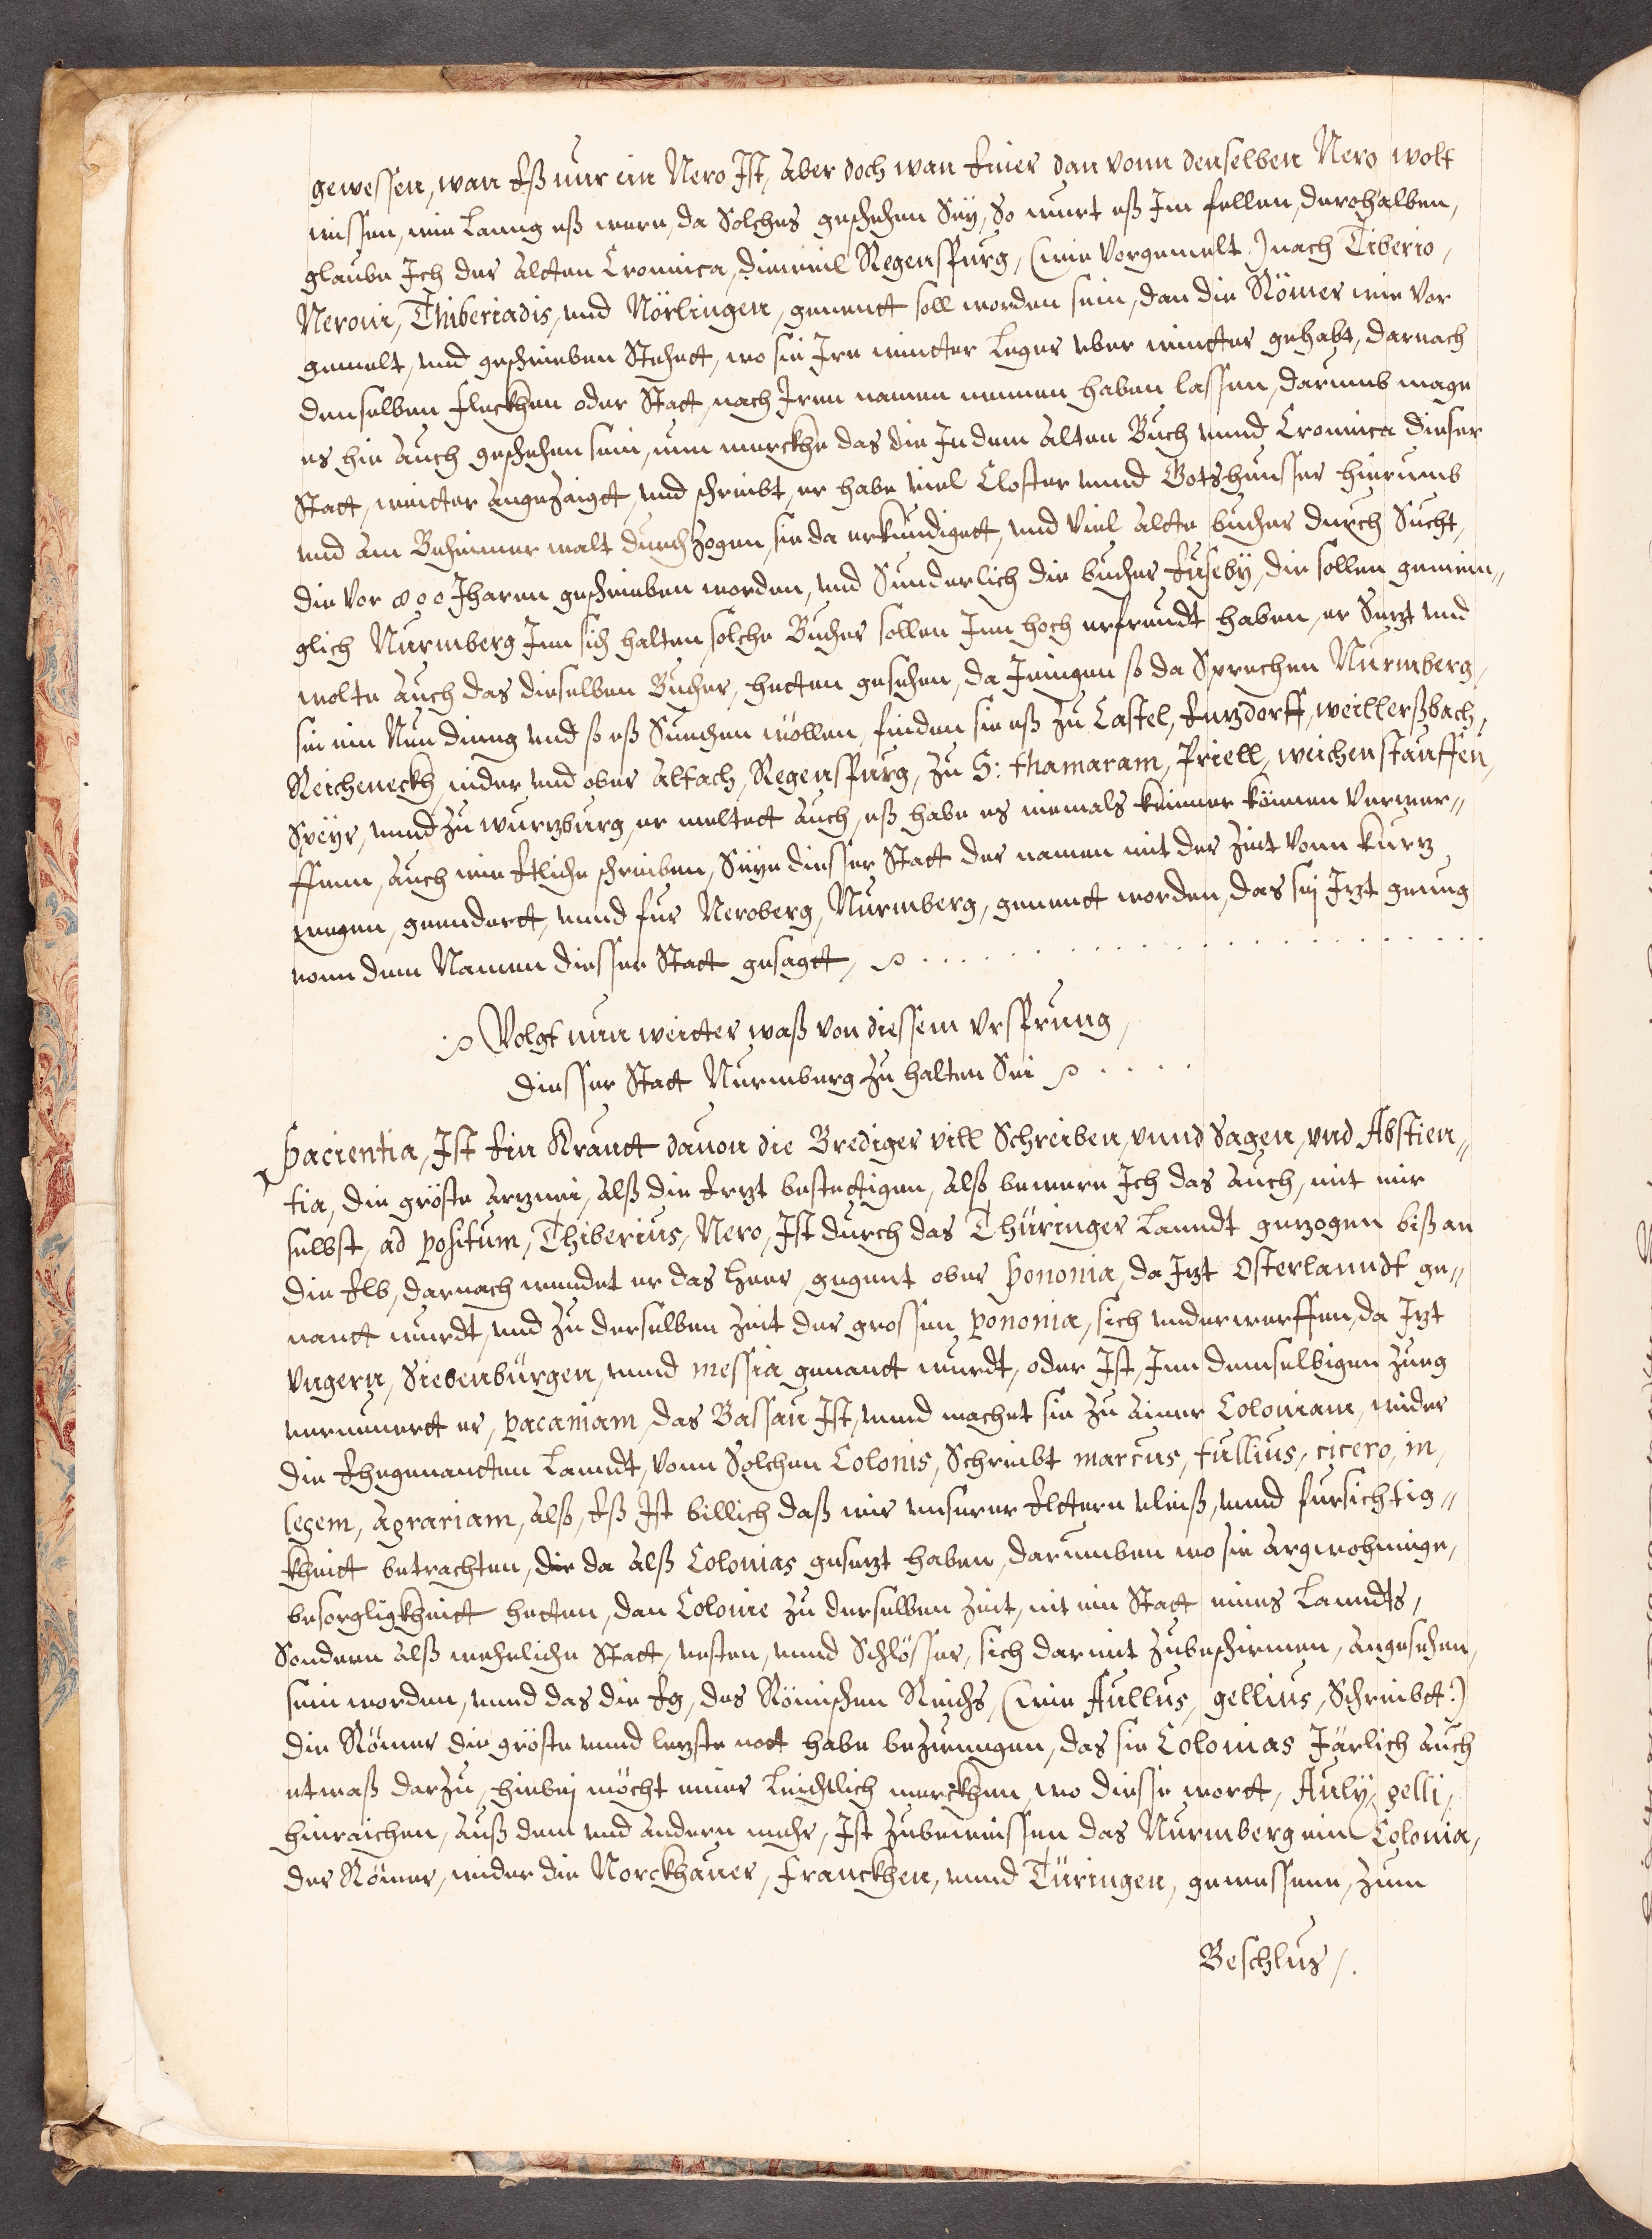 gewessen, wan Eß nur ein Nero Ist, Aber doch wan Einer dan vonn denselben Nero wolt
wissen, wie Lanng eß were, da Solches geschehen Sey, So wurt eß Im fellen, derohalben,
glaube Ich der Altten Cronnica, dieweil Regenspurg, (wie Vorgemelt:) nach Tiberio,
Neroni, Thiberiadis, und Nörlingen, genentt soll worden sein, dan die Römer wie Vor
gemelt, und geschrieben Stehett, wo sie Ire wintter Leger vber wintter gehabt, darnach
denselben fleckhen oder Statt, nach Iren namen nennen haben lassen, darumb mage
es hie Auch geschehen sein, nun merckhe das die In dem Alten Buch vnnd Cronnica dieser
Statt, weitter Angezaigtt, und schreibt, er habe viel Closter vnnd Gotsheusser hierumb
und Am Beheimer walt durchzogen, sie da erkundigett, und Viel Altte bucher durch Sucht,
die Vor 800 Jharen geschrieben worden, und Sunderlich die bucher Euseby, die sollen gewein„
glich Nurmberg Inn sich halten, solche Bucher sollen Inn hoch erfreudt haben, er Sagt und
wolte Auch das dieselben Bucher, hetten gesehen, da Jenigen so da Sprechen Nurmberg,
sei ein Neu dinng und so eß Suechen wöllen, finden sie eß zu Castel, Enzdorff, weillerßbach,
Reicheneckh, nider und ober Altach, Regenspurg, zu S: Thamaram, Priell, weichenstauffen,
Speyr, vnnd zu wurtzburg, er meltett Auch, eß habe es niemals keinner können Verwer„
ffenn, Auch wie Etliche schreiben, Seye diesser Statt der namen mit der Zeit Vonn kurtz
wegen, geendertt, vnnd fur Neroberg, Nurmberg, genentt worden, das sej Itzt genug
vonn dem Namen diesser Statt gesagtt,
Volgt nun weitter waß von diessem Vrsprung,
diesser Statt Nurmberg zu halten Sei
Pacientia, Ist Ein Krautt dauon die Brediger vill Schreiben, vnnd Sagen, vnd Abstien„
tia, die gröste Artznei, Alß die Ertzt bestettigen, Alß bewere Ich das Auch, mit mir
selbst, ad positum, Thiberius, Nero, Ist durch das Thüringer Lanndt getzogen biß an
die Elb, darnach wendet er das Heer, gegent ober Pononia, da Itzt Osterlanndt ge„
nantt wurdt, und zu derselben Zeit der grossen pononia, sich underwerffen, da Itzt
Vngern, Siebenbürgen, vnnd messia genantt wurdt, oder Ist, Inn demselbigen Zueg
vernewert er, pacaniam, das Bassau Ist, vnnd machet sie zu Ainer Coloniam, wider
die Ehegenantten Lanndt, Vonn Solchen Colonis, Schreibt marcus, tullius, cicero, in,
legem, Agrariam, Alß, Eß Ist billich daß wir unserer Elttern vleiß, vnnd fursichtig„
kheitt betrachten, die da Alß Colonias gesetzt haben, darumben wo sie Argwohninge,
besorgligkheitt hetten, dan Colonie zu derselben Zeit, nit ein Statt eines Lanndts,
Sondern Alß wehrliche Statt, vesten, vnnd Schlösser, sich darmit zubeschirmen, Angesehen,
sein worden, vnnd das die Eg, des Römischen Reichs, (wie Aullus, gellius, Schreibtt:)
die Römer die gröste vnnd letzste nott habe bezwungen, das sie Colonias Järlich Auch
etwaß darzu, hinbej möcht einer Leichtlich merckhen, wo diesse wortt, Auly, gelli,
hinraichen, Auß dem und andern mehr, Ist zubeweissen das Nurmberg ein Colonia,
der Römer, wider die Norckhauer, Franckhen, vnnd Türingen, gewessenn, zum
Beschlus /.